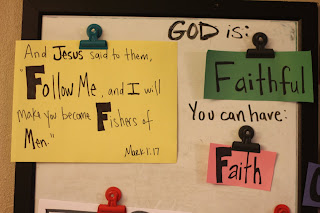 And Jesus said to them,
"Follow Me, and I will
make you become Fishers of
Men."
Mark 1:17
GOD is:
Faithful
You can have:
Faith